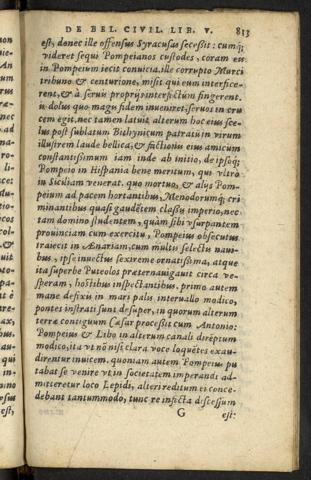 DE BEL. CIVIL. LIB. V. 813
est, donec ille offensus Syracusas secessit: cumq;
videret sequi Pompeianos custodes, coram eis
in Pompeium iecit convicia. ille corrupto Murci
tribuno & centurione, misit qui eum interfice-
rent, & à servis proprijs interfectum fingerent.
is dolus quo magis fidem inveniret, servos in cru
cem egit. nec tamen latuit alterum hoc eius sce-
lus post sublatum Bithynicum patratũ in virum
illustrem laude bellica, & factionis eius amicum
constantissimum iam inde ab initio, de ipsoq;
Pompeio in Hispania bene meritum, qui vltro
in Siciliam venerat. quo mortuo, & alijs Pom-
peium ad pacem hortantibus, Menodorumq; cri
minantibus quasi gaudẽtem classis imperio, nec
tam domino studentem, quàm sibi vsurpantem
prouinciam cum exercitu, Pompeius obsecutus
traiecit in Ænariam, cum multis selectis navi-
bus, ipse invectus sexiremẽ ornatissima, atque
ita superbe Puteolos præternauigauit circa ve-
speram, hostibus inspectantibus. primo autem
mane defixis in mari palis interuallo modico,
pontes instrati sunt desuper, in quorum alterum
terræ contiguum Cæsar processit cum Antonio:
Pompeius & Libo in alterum canali direptum
modico, ita vt nõ nisi clara voce loquẽtes exau-
dirентur inuicem. quoniam autem Pompeius pu
tabat se venire vt in societatem imperandi ad-
mitteretur loco Lepidi, alteri reditum ei conce-
debant tantummodo, tunc re infecta discessum
G est: